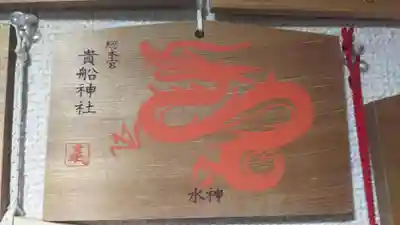 総本宮
貴船神社
水神